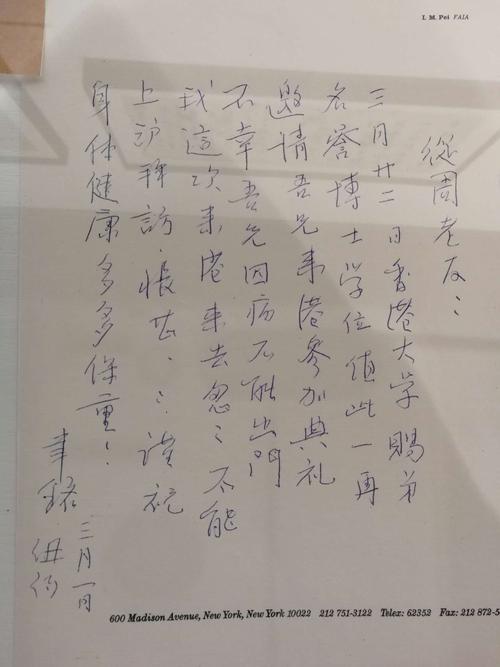 I. M. Pei FAIA
從周老友：
三月廿二日香港大学賜弟
名誉博士学位值此一再
邀情吾兄来港参加典礼
不幸吾兄因病不能出門
我這次来港来去忽〻不能
上沪拜訪·悵甚·〻謹祝
身体健康多多保重！
聿銘
三月一日
纽约
600 Madison Avenue, New York, New York 10022 212 751-3122 Telex: 62352 Fax: 212 872-5